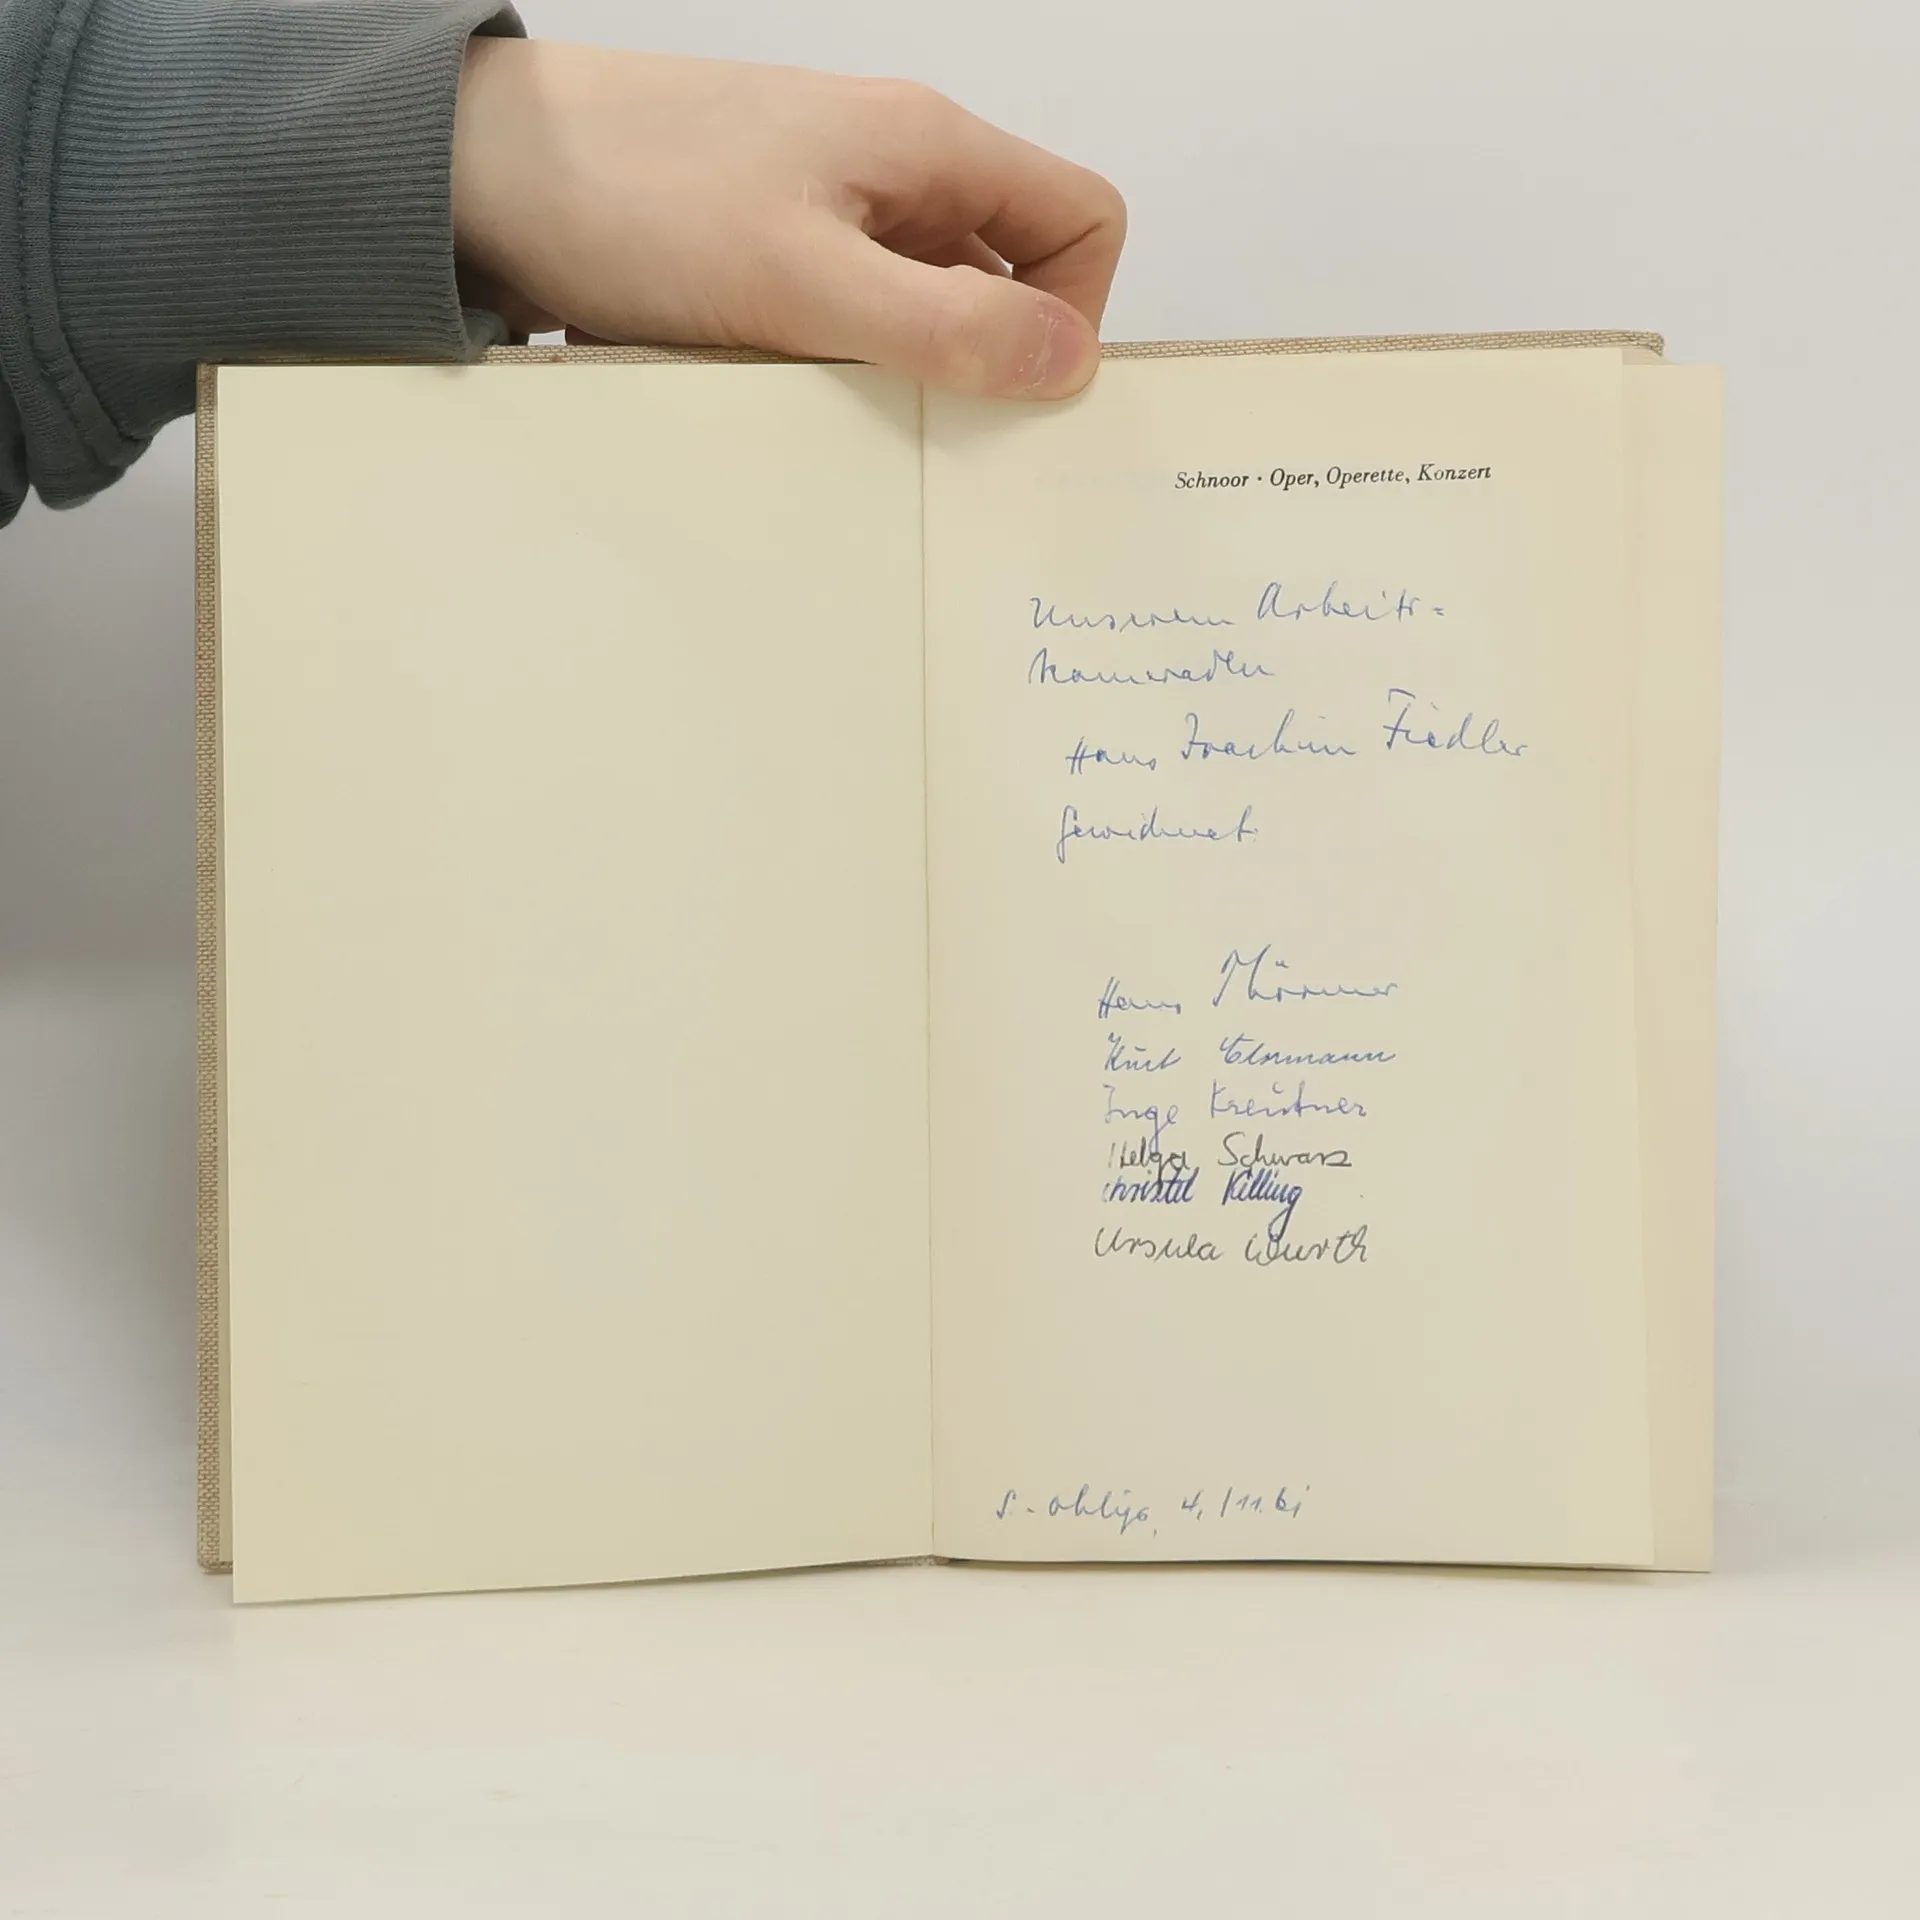 Schnoor · Oper, Operette, Konzert
Unserem Arbeits=
kameraden
Hans Joachim Fiedler
gewidmet.
Hans
Kurt
Inge Kreutner
Helga Schwarz
Christel Killing
Ursula Wurth